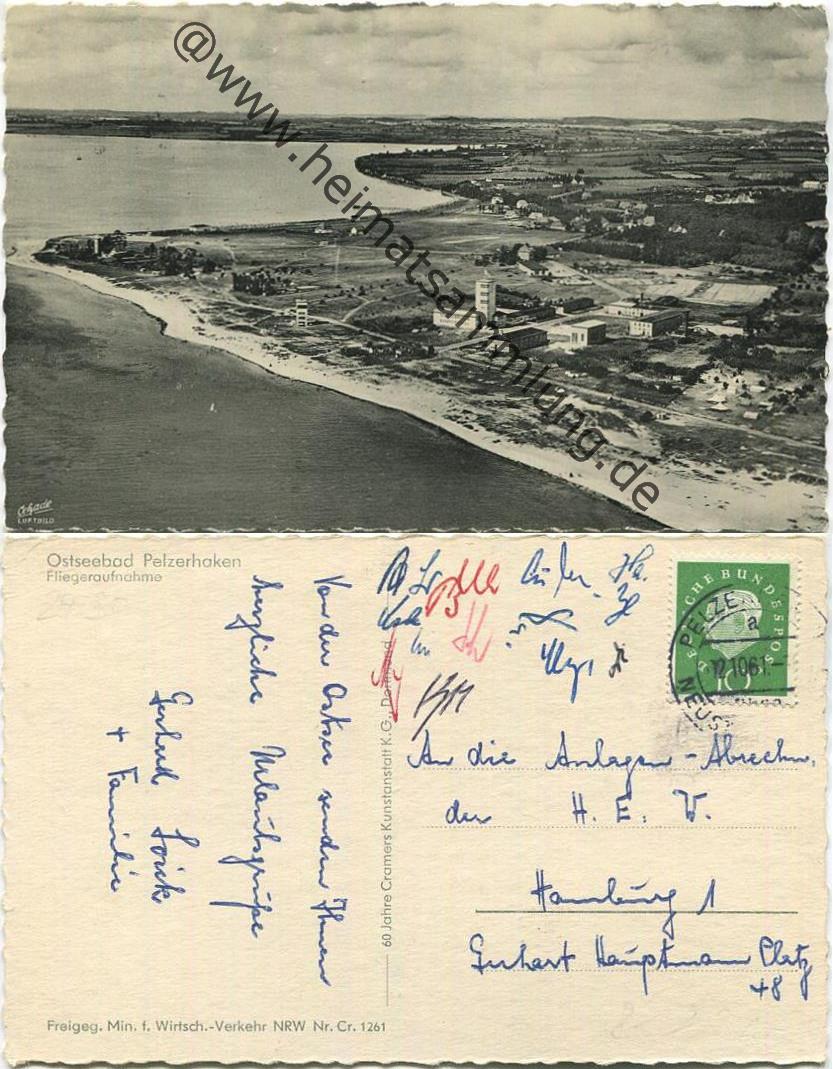 @www.heimatsammlung.de
Schade
LUFTBILD
Ostseebad Pelzerhaken
Fliegeraufnahme
DEUTSCHE BUNDESPOST
10
PELZERH
a
12.10.61
NEUS
Von der Ostsee senden Ihnen
herzliche Urlaubsgrüße
Gerhard
+ Familie
60 Jahre Cramers Kunstanstalt K.G., Dortmund
An die Anlagen-Abrechn.
der H. E. W.
Hamburg 1
Gerhart Hauptmann Platz
48
Freigeg. Min. f. Wirtsch.-Verkehr NRW Nr. Cr. 1261